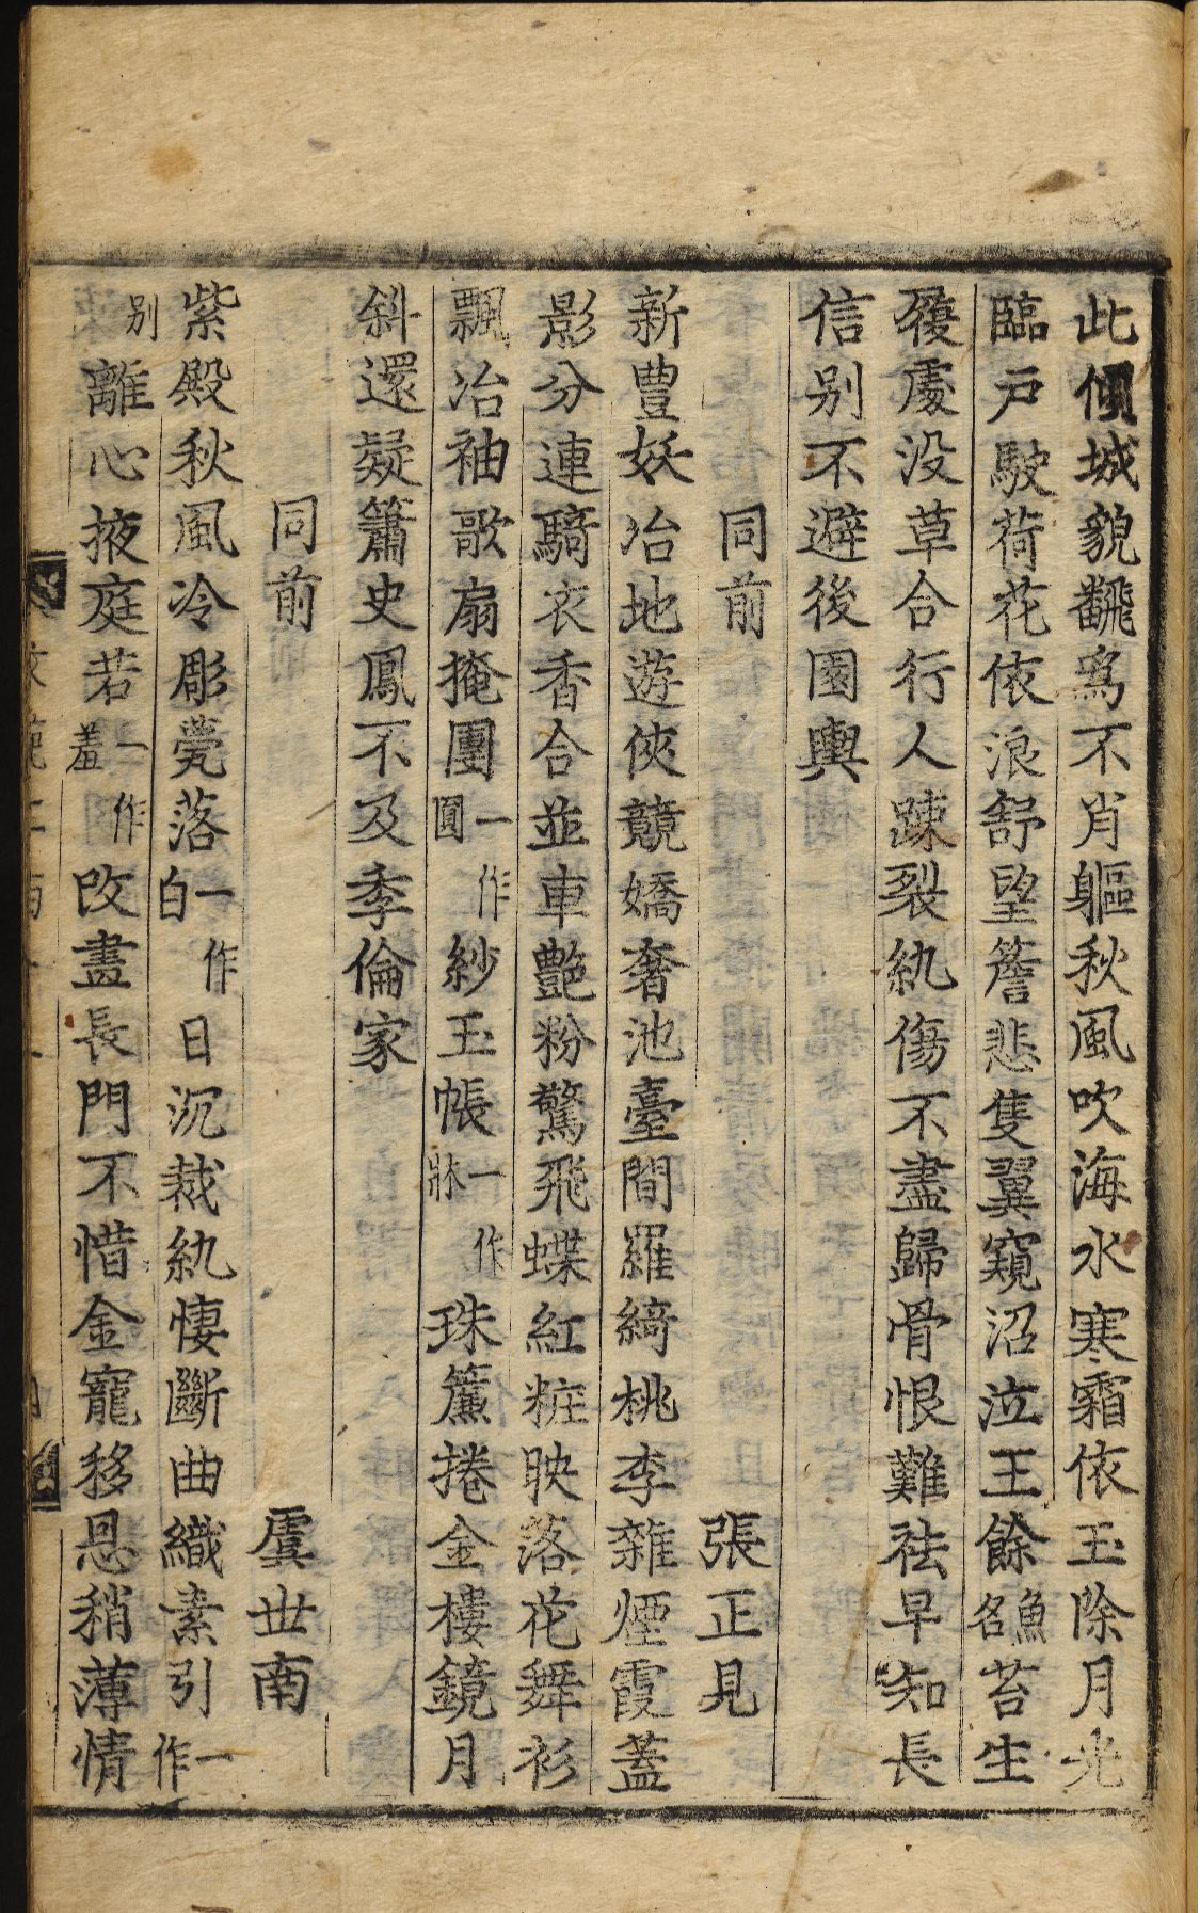 此傾城貌翻爲不肖軀秋風吹海水寒霜依玉除月光
臨戸駛荷花依浪舒望簷悲隻翼窺沼泣王餘鰩苔生
履處没草合行人踈裂紈傷不盡歸骨恨難祛早知長
信别不避後園輿
同前 張正見
新豊妖冶地遊俠競嬌奢池臺間羅綺桃李雜煙霞蓋
影分連騎衣香合並車艷粉驚飛蝶紅粧映落花舞衫
飄冶袖歌扇掩團一作圓紗玉帳一作牀珠簾捲金樓鏡月
斜還疑簫史鳳不及季倫家
同前 虞世南
紫殿秋風冷彫甍落一作白日沉裁紈悽斷曲織素引一作
别離心掖庭若一作羞改盡長門不惜金寵移恩稍薄情